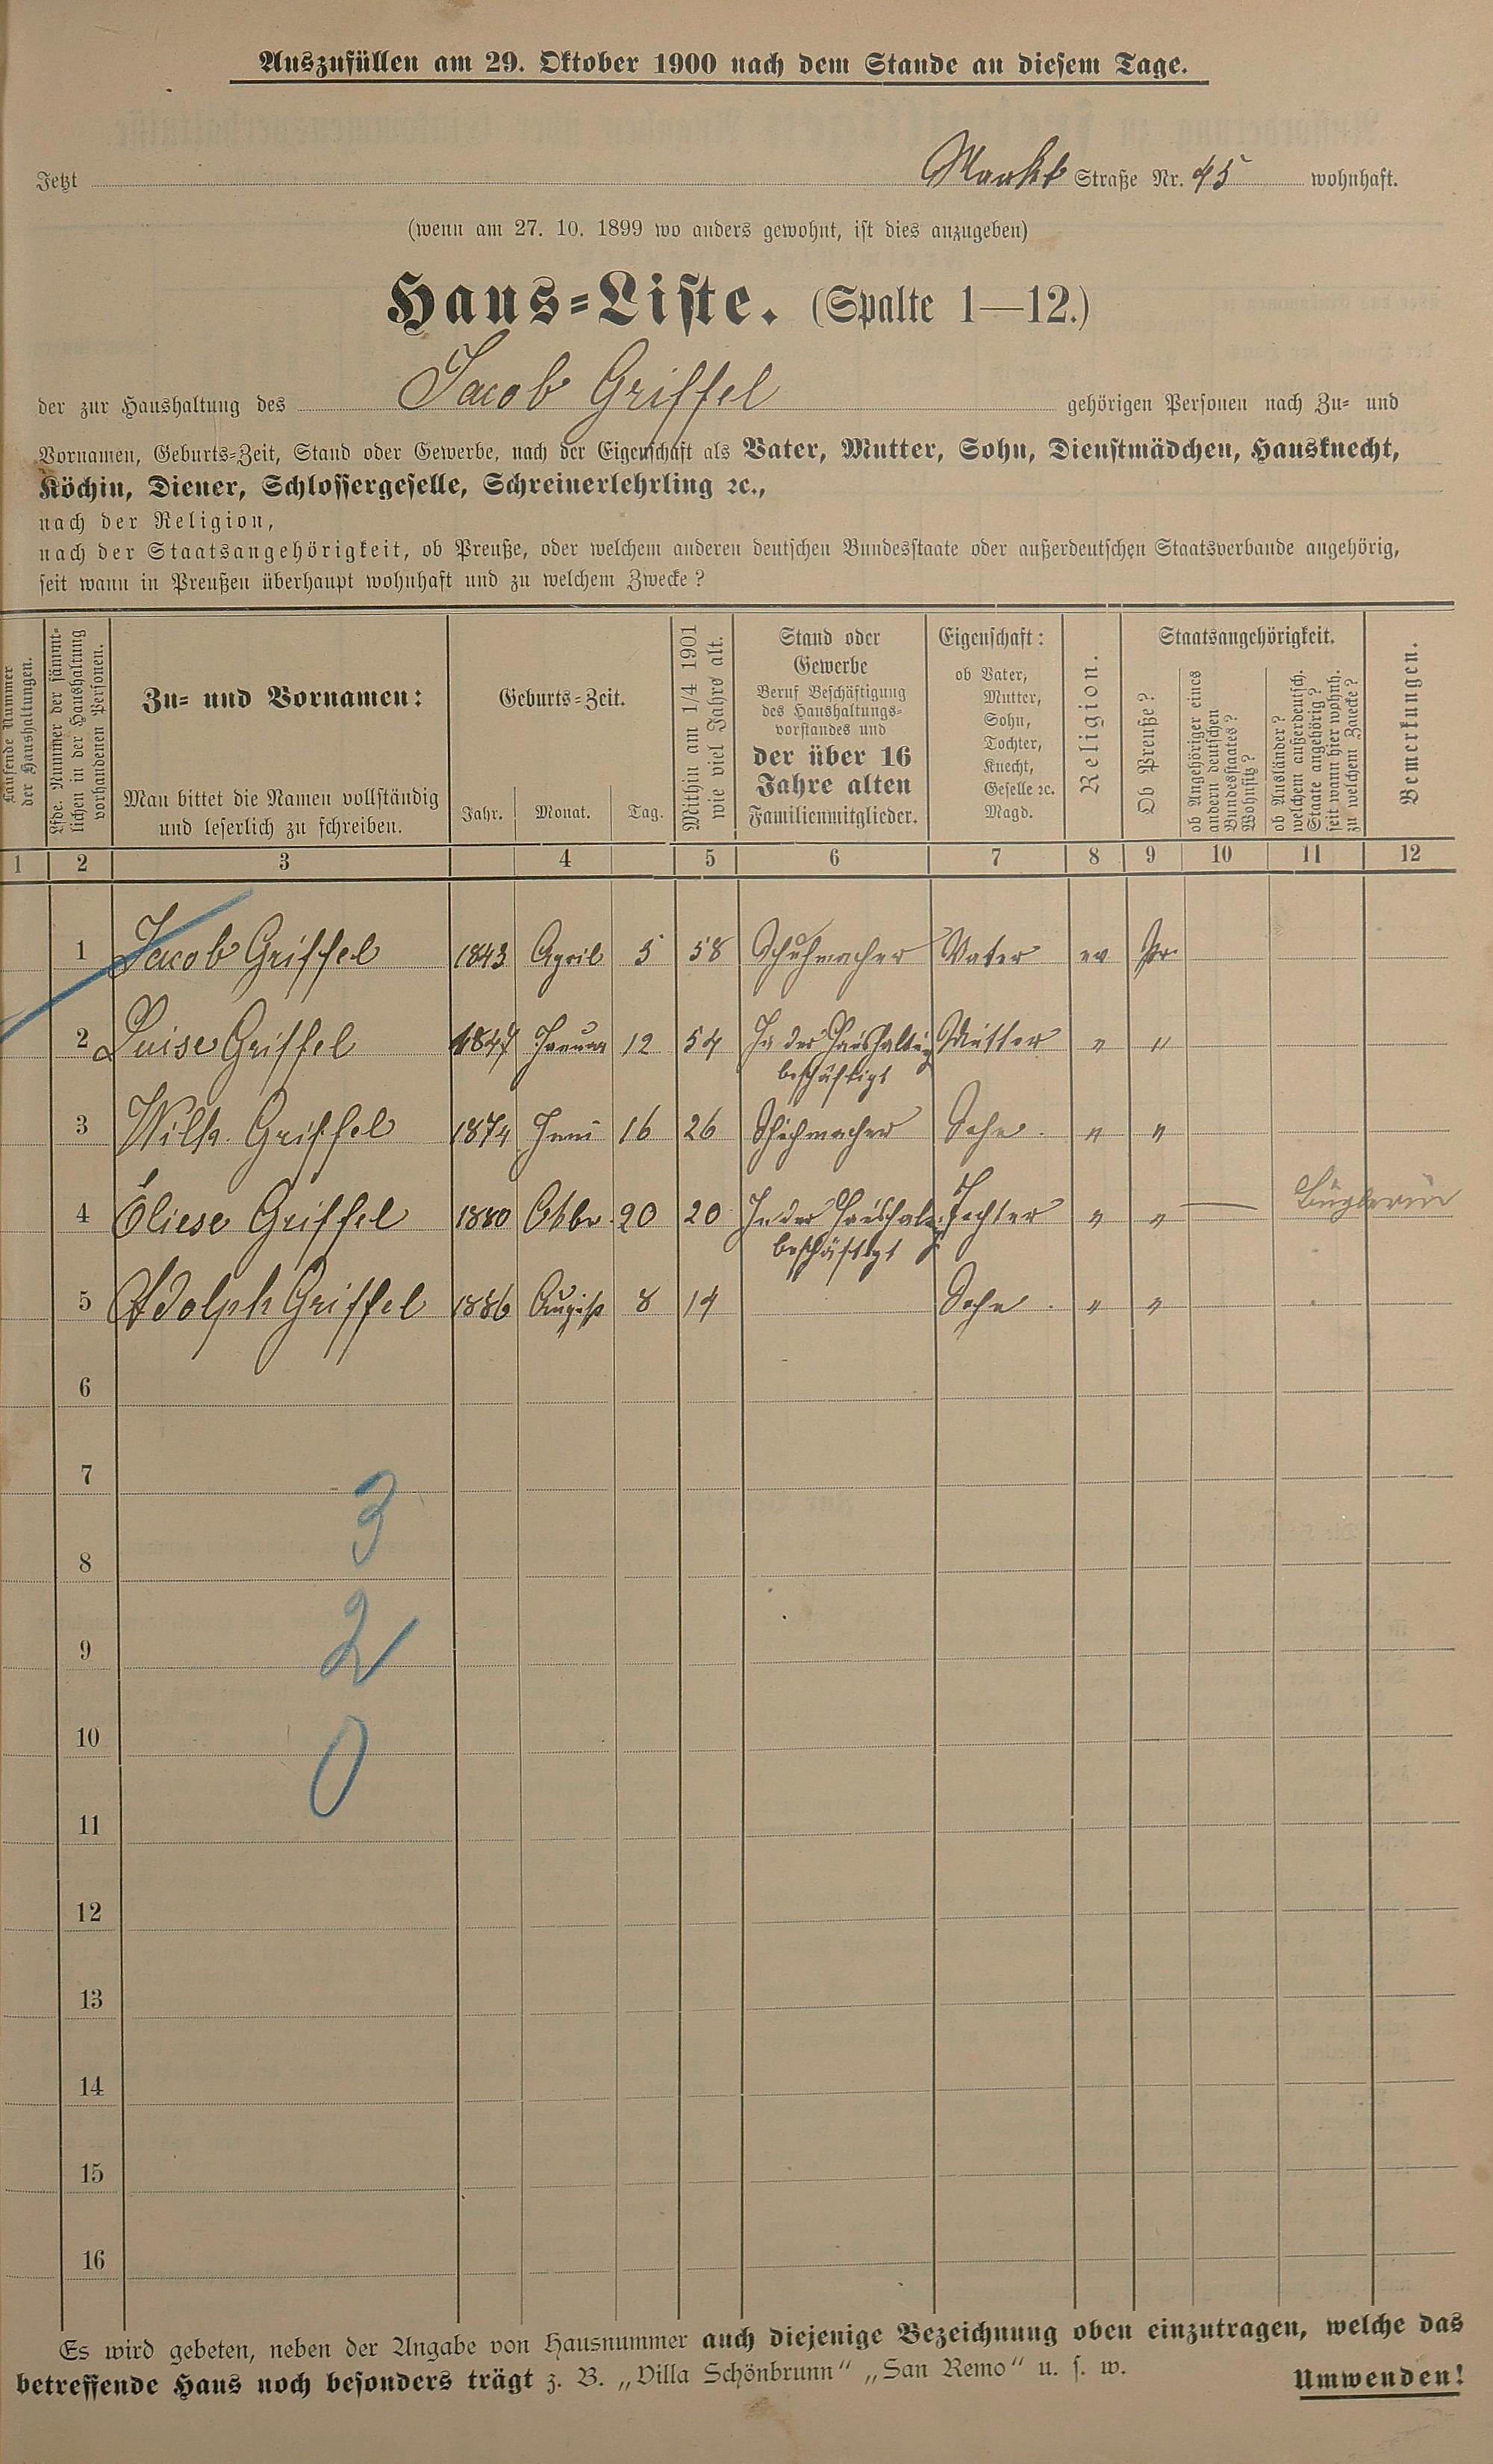 Auszufüllen am 29. Oktober 1900 nach dem Stande an diesem Tage.
Jetzt Markt Straße Nr. 45 wohnhaft.
(wenn am 27. 10. 1899 wo anders gewohnt, ist dies anzugeben)
Haus-Liste. (Spalte 1—12.)
der zur Haushaltung des Jacob Griffel gehörigen Personen nach Zu- und
Vornamen, Geburts-Zeit, Stand oder Gewerbe, nach der Eigenschaft als Vater, Mutter, Sohn, Dienstmädchen, Hausknecht,
Köchin, Diener, Schlossergeselle, Schreinerlehrling ꝛc.,
nach der Religion,
nach der Staatsangehörigkeit, ob Preuße, oder welchem anderen deutschen Bundesstaate oder außerdeutschen Staatsverbande angehörig,
seit wann in Preußen überhaupt wohnhaft und zu welchem Zwecke?
Laufende Nummer
der Haushaltungen.
Lfde. Nummer der sämmt-
lichen in der Haushaltung
vorhandenen Personen.
Zu- und Vornamen:
Man bittet die Namen vollständig
und leserlich zu schreiben.
Geburts-Zeit.
Jahr. Monat. Tag.
Mithin am 1/4 1901
wie viel Jahre alt.
Stand oder
Gewerbe
Beruf Beschäftigung
des Haushaltungs-
vorstandes und
der über 16
Jahre alten
Familienmitglieder.
Eigenschaft:
ob Vater,
Mutter,
Sohn,
Tochter,
Knecht,
Geselle ꝛc.
Magd.
Religion.
Staatsangehörigkeit.
Ob Preuße?
ob Angehöriger eines
andern deutschen
Bundesstaates?
Wohnsitz?
ob Ausländer?
welchem außerdeutsch.
Staate angehörig?
seit wann hier wohnh.
zu welchem Zwecke?
Bemerkungen.
1 2 3 4 5 6 7 8 9 10 11 12
1 Jacob Griffel 1843 April 5 58 Schuhmacher Vater ev Pr.
2 Luise Griffel 1847 Januar 12 54 In der Haushaltung beschäftigt Mutter " "
3 Wilh. Griffel 1874 Juni 16 26 Schuhmacher Sohn. " "
4 Eliese Griffel 1880 Oktbr. 20 20 In der Haushaltg beschäftigt Tochter " " — Büglerin
5 Adolph Griffel 1886 August 8 14 Sohn. " "
6
7
3
8
2
9
10
0
11
12
13
14
15
16
Es wird gebeten, neben der Angabe von Hausnummer auch diejenige Bezeichnung oben einzutragen, welche das
betreffende Haus noch besonders trägt z. B. „Villa Schönbrunn“ „San Remo“ u. s. w.
Umwenden!